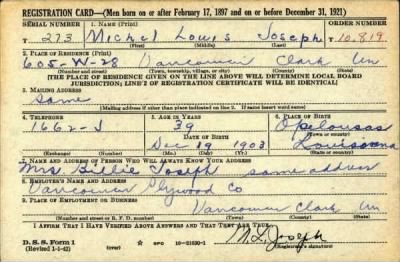 REGISTRATION CARD—(Men born on or after February 17, 1897 and on or before December 31, 1921)
SERIAL NUMBER 1. NAME (Print) ORDER NUMBER
T 273 Michel Louis Joseph T 10,819
(First) (Middle) (Last)
2. PLACE OF RESIDENCE (Print)
605-W-28 Vancouver Clark Wn
(Number and street) (Town, township, village, or city) (County) (State)
[THE PLACE OF RESIDENCE GIVEN ON THE LINE ABOVE WILL DETERMINE LOCAL BOARD
JURISDICTION; LINE 2 OF REGISTRATION CERTIFICATE WILL BE IDENTICAL]
3. MAILING ADDRESS
Same
[Mailing address if other than place indicated on line 2. If same insert word same]
4. TELEPHONE 5. AGE IN YEARS 6. PLACE OF BIRTH
1662-J 39 Opelousas
DATE OF BIRTH (Town or county)
Dec 19 1903 Louisiana
(Exchange) (Number) (Mo.) (Day) (Yr.) (State or country)
7. NAME AND ADDRESS OF PERSON WHO WILL ALWAYS KNOW YOUR ADDRESS
Mrs. Billie Joseph same address
8. EMPLOYER'S NAME AND ADDRESS
Vancouver Plywood Co
9. PLACE OF EMPLOYMENT OR BUSINESS
Vancouver Clark Wn
(Number and street or R. F. D. number) (Town) (County) (State)
I AFFIRM THAT I HAVE VERIFIED ABOVE ANSWERS AND THAT THEY ARE TRUE.
D. S. S. Form 1
(Revised 1-1-42) GPO 16-21630-1 M. L. Joseph
(Registrant's signature)